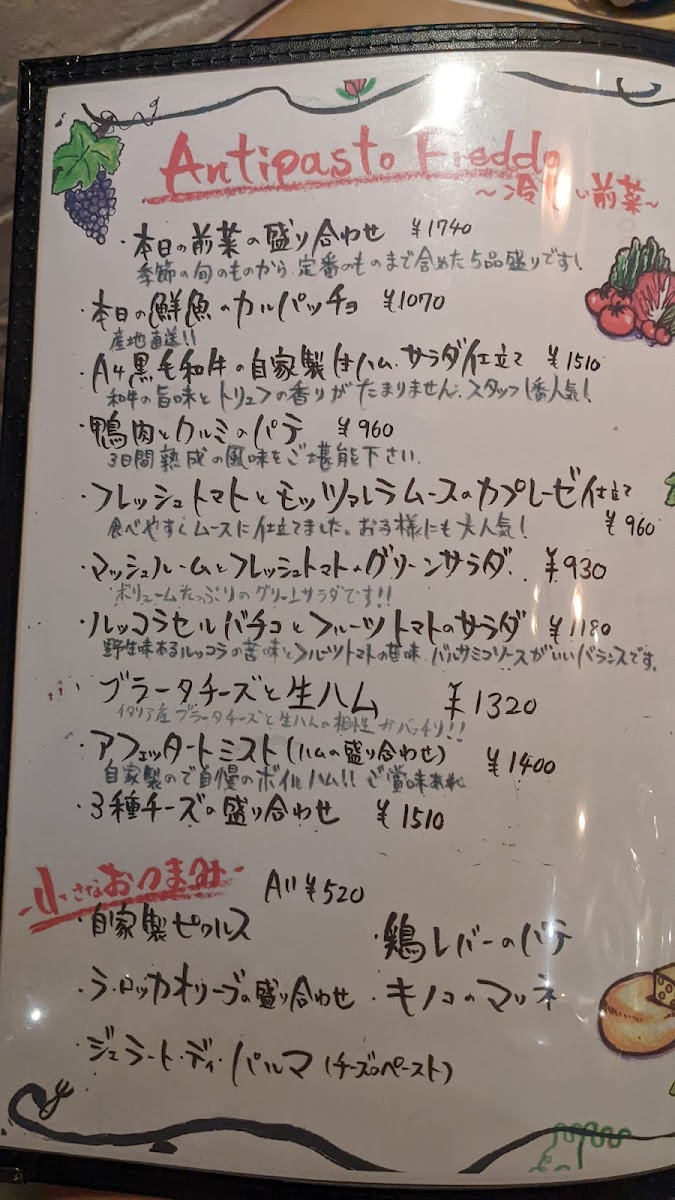 Antipasto Freddo
〜冷たい前菜〜
・本日の前菜の盛り合わせ ¥1740
季節の旬のものから、定番のものまで含めた5品盛りです!
・本日の鮮魚のカルパッチョ ¥1070
産地直送!!
・A4黒毛和牛の自家製生ハム、サラダ仕立て ¥1510
和牛の旨味とトリュフの香りがたまりません。スタッフ1番人気!
・鴨肉とクルミのパテ ¥960
3日間熟成の風味をご堪能下さい。
・フレッシュトマトとモッツァレラムースのカプレーゼ仕立て
食べやすくムースに仕立てました。お子様にも大人気! ¥960
・マッシュルームとフレッシュトマトのグリーンサラダ ¥930
ボリュームたっぷりのグリーンサラダです!!
・ルッコラセルバチコとフルーツトマトのサラダ ¥1180
野生味あるルッコラの苦味とフルーツトマトの甘味、バルサミコソースがいいバランスです。
ブラータチーズと生ハム ¥1320
イタリア産ブラータチーズと生ハムの相性がバッチリ!!
・アフェッタートミスト(ハムの盛り合わせ) ¥1400
自家製ので自慢のボイルハム!!ご賞味あれ
・3種チーズの盛り合わせ ¥1510
-小さなおつまみ- All ¥520
・自家製ピクルス
・鶏レバーのパテ
・ラ・ロッカオリーブの盛り合わせ
・キノコのマリネ
・ジェラート・ディ・パルマ(チーズのペースト)